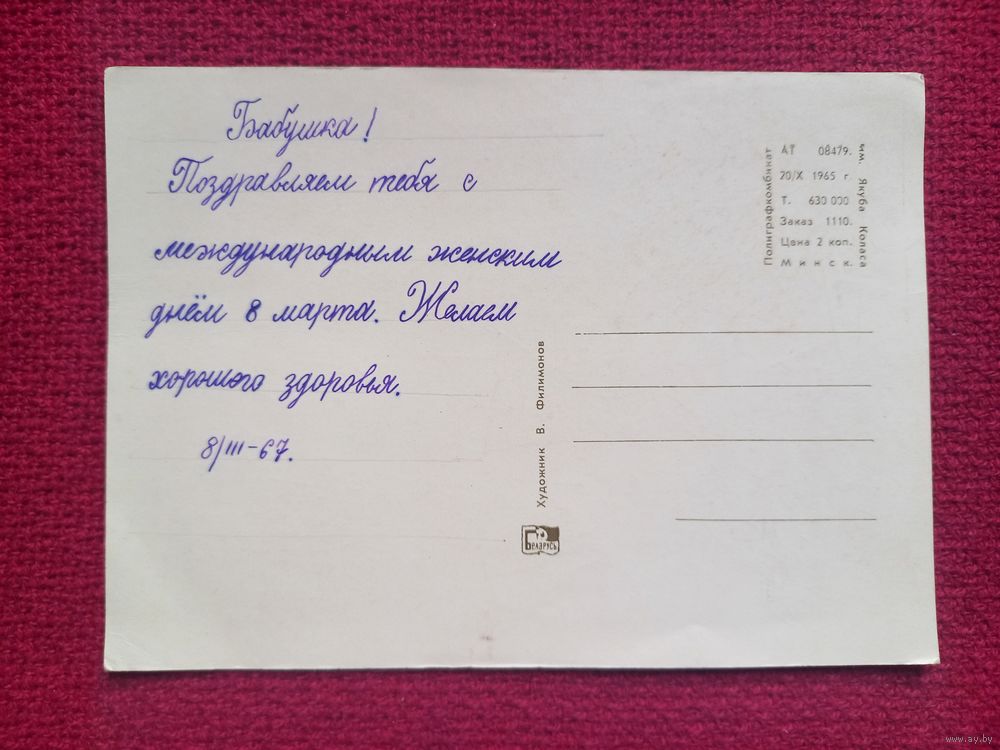 Бабушка!
Поздравляем тебя с
международным женским
днём 8 марта. Желаем
хорошего здоровья.
8/III-67.
Художник В. Филимонов
БЕЛАРУСЬ
Полиграфкомбинат
АТ 08479.
20/X 1965 г.
Т. 630 000
Заказ 1110.
Цена 2 коп.
Минск.
им. Якуба Коласа
www.ay.by